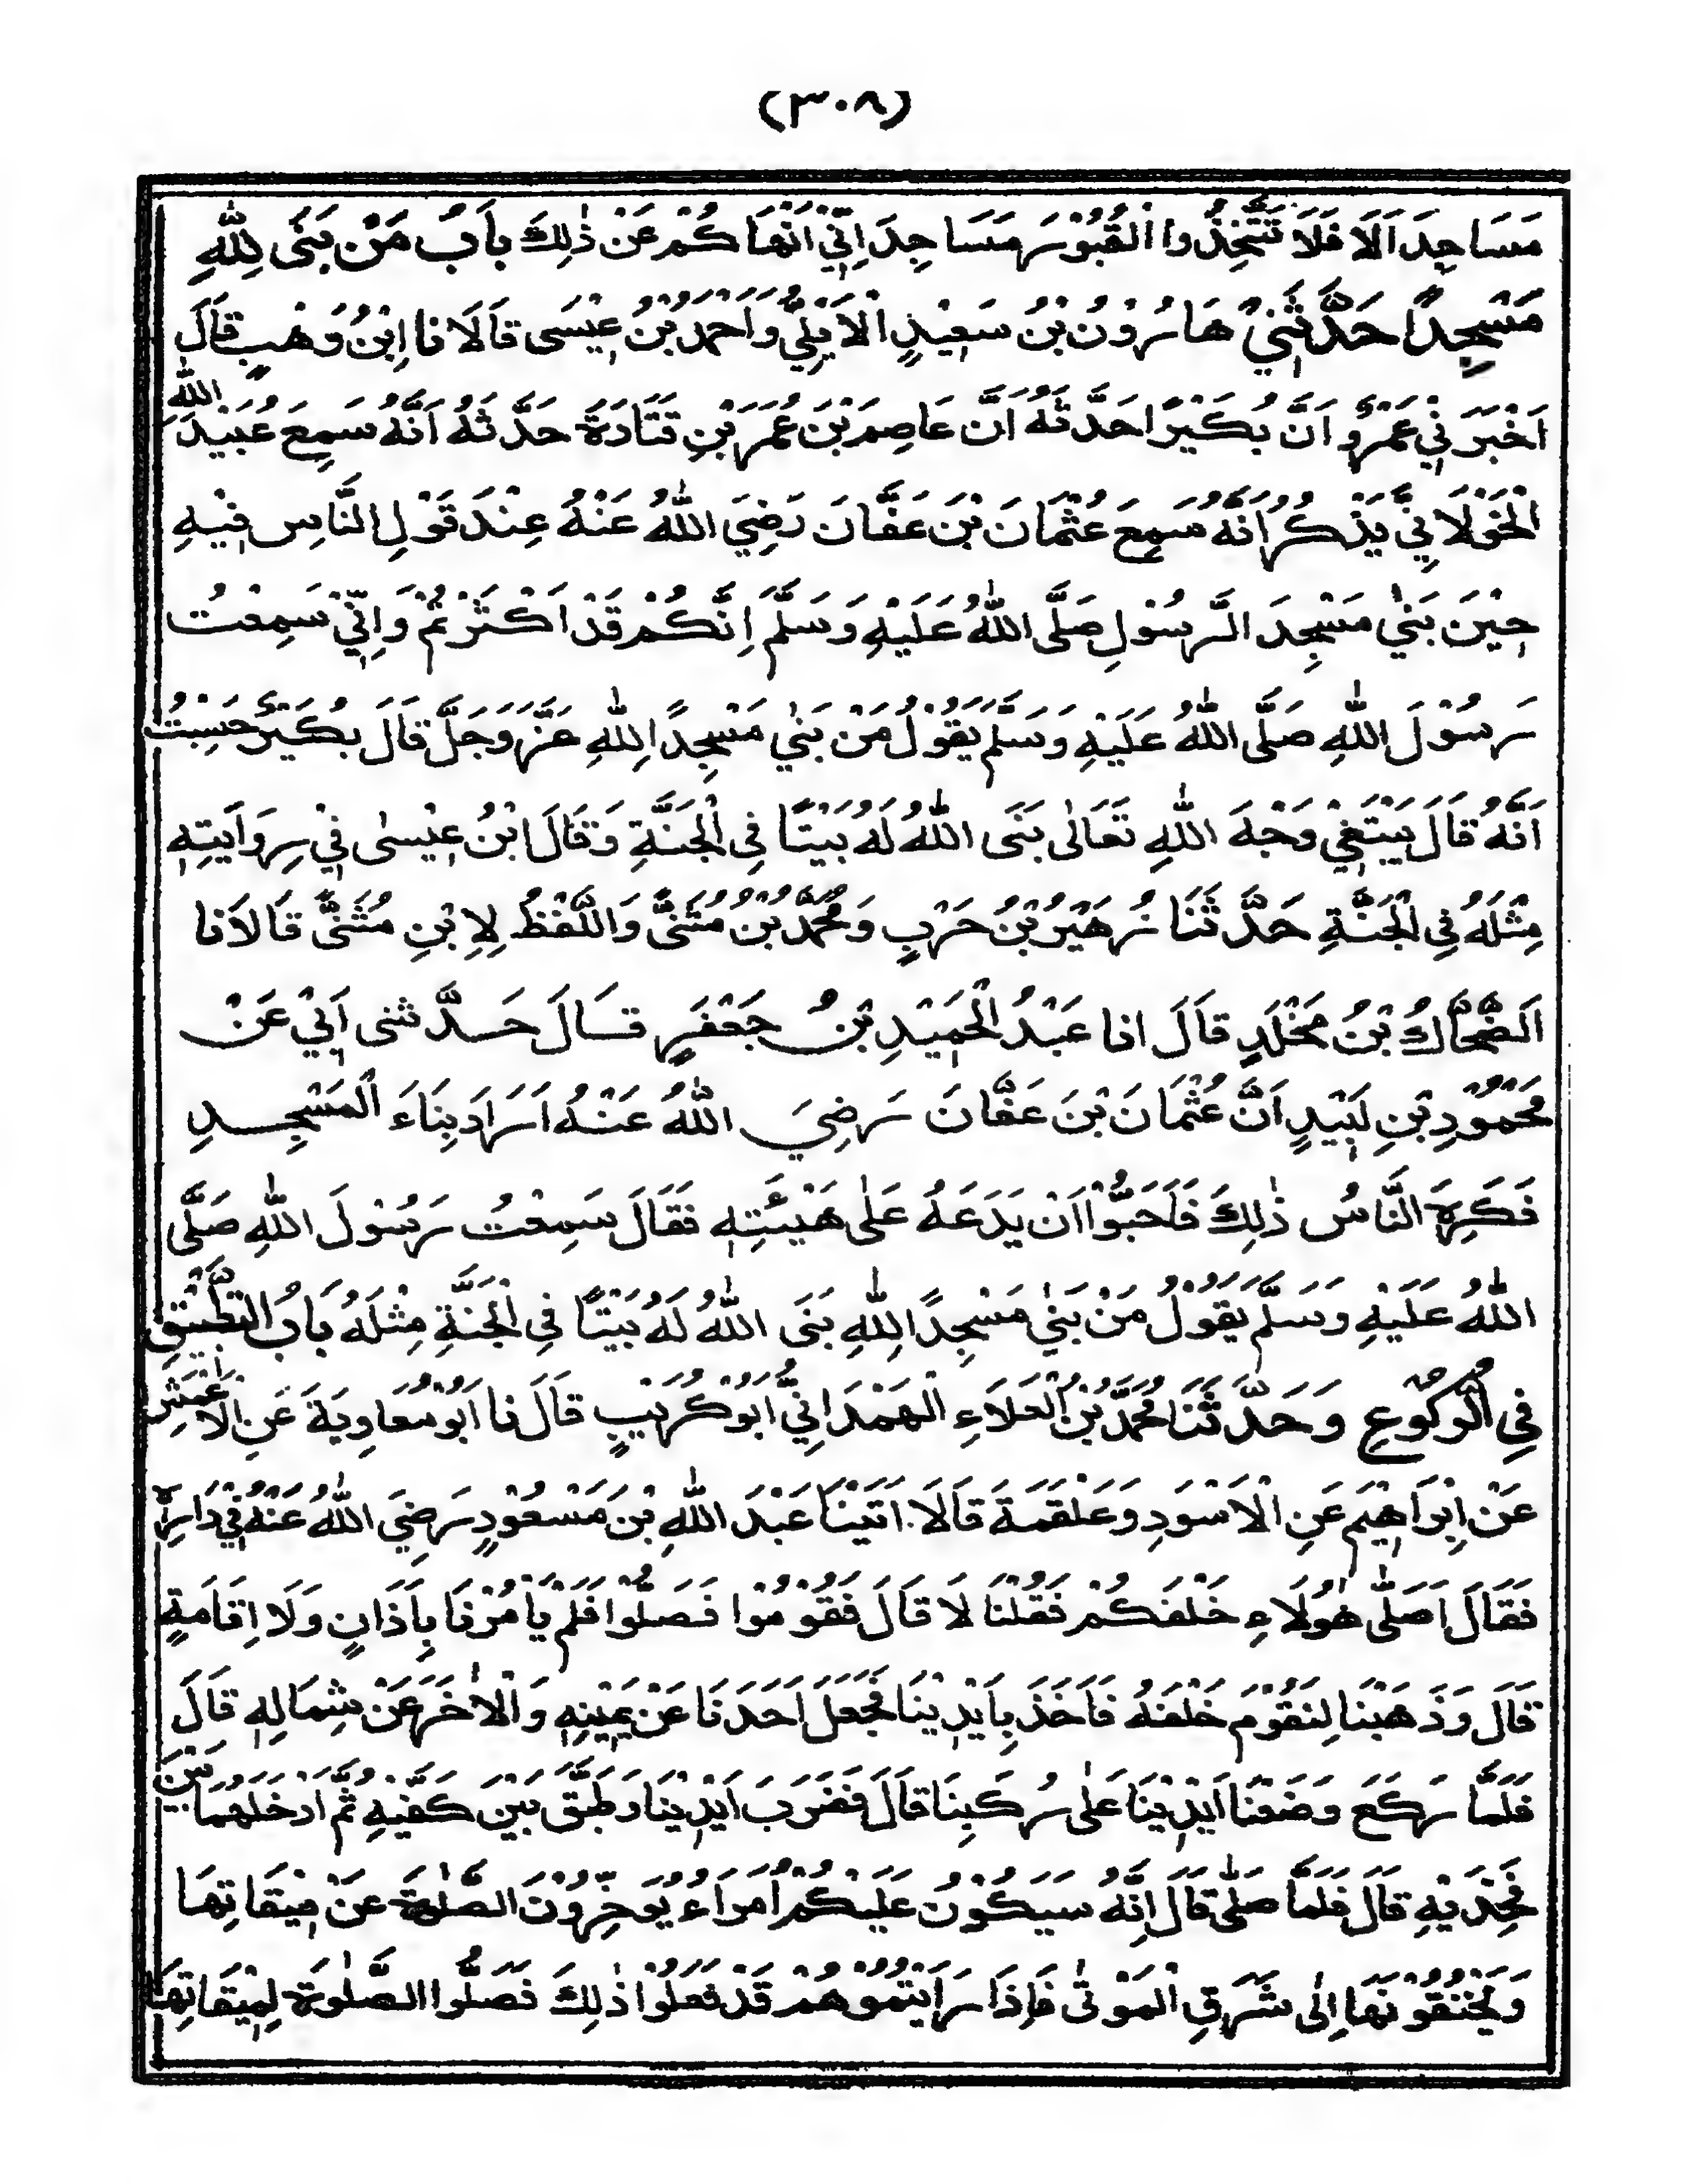 (٣٠٨)
مَسَاجِدَ اَلَا فَلَا تَتَّخِذُوا الْقُبُوْرَ مَسَاجِدَ اِنِّيْ اَنْهَاكُمْ عَنْ ذٰلِكَ بَابُ مَنْ بَنَى لِلّٰهِ
مَسْجِدًا حَدَّثَنِيْ هَارُوْنُ بْنُ سَعِيْدٍ الْاَيْلِيُّ وَاَحْمَدُ بْنُ عِيْسَى قَالَا نا اِبْنُ وَهْبٍ قَالَ
اَخْبَرَنِيْ عَمْرٌو اَنَّ بُكَيْرًا حَدَّثَهُ اَنَّ عَاصِمَ بْنَ عُمَرَ بْنِ قَتَادَةَ حَدَّثَهُ اَنَّهُ سَمِعَ عُبَيْدَ اللّٰهِ
الْخَوْلَانِيَّ يَذْكُرُ اَنَّهُ سَمِعَ عُثْمَانَ بْنَ عَفَّانَ رَضِيَ اللّٰهُ عَنْهُ عِنْدَ قَوْلِ النَّاسِ فِيْهِ
حِيْنَ بَنٰي مَسْجِدَ الرَّسُوْلِ صَلَّى اللّٰهُ عَلَيْهِ وَسَلَّمَ اِنَّكُمْ قَدْ اَكْثَرْتُمْ وَاِنِّيْ سَمِعْتُ
رَسُوْلَ اللّٰهِ صَلَّى اللّٰهُ عَلَيْهِ وَسَلَّمَ يَقُوْلُ مَنْ بَنٰي مَسْجِدًا لِلّٰهِ عَزَّ وَجَلَّ قَالَ بُكَيْرٌ حَسِبْتُ
اَنَّهُ قَالَ يَبْتَغِيْ وَجْهَ اللّٰهِ تَعَالٰى بَنَى اللّٰهُ لَهُ بَيْتًا فِي الْجَنَّةِ وَقَالَ ابْنُ عِيْسٰى فِيْ رِوَايَتِهٖ
مِثْلَهُ فِي الْجَنَّةِ حَدَّثَنَا زُهَيْرُ بْنُ حَرْبٍ وَمُحَمَّدُ بْنُ مُثَنَّى وَاللَّفْظُ لِاِبْنِ مُثَنَّى قَالَا نا
اَلضَّحَّاكُ بْنُ مَخْلَدٍ قَالَ انا عَبْدُ الْحَمِيْدِ بْنُ جَعْفَرٍ قَالَ حَدَّثنى اَبِيْ عَنْ
مَحْمُوْدِ بْنِ لَبِيْدٍ اَنَّ عُثْمَانَ بْنَ عَفَّانَ رَضِيَ اللّٰهُ عَنْهُ اَرَادَ بِنَاءَ الْمَسْجِدِ
فَكَرِهَ النَّاسُ ذٰلِكَ فَاَحَبُّوْا اَنْ يَدَعَهُ عَلٰى هَيْئَتِهٖ فَقَالَ سَمِعْتُ رَسُوْلَ اللّٰهِ صَلَّى
اللّٰهُ عَلَيْهِ وَسَلَّمَ يَقُوْلُ مَنْ بَنٰي مَسْجِدًا لِلّٰهِ بَنَى اللّٰهُ لَهُ بَيْتًا فِي الْجَنَّةِ مِثْلَهُ بَابُ التَّطْبِيْقِ
فِي الرُّكُوْعِ وَحَدَّثَنَا مُحَمَّدُ بْنُ الْعَلَاءِ الْهَمْدَانِيُّ اَبُوْ كُرَيْبٍ قَالَ نا اَبُوْ مُعَاوِيَةَ عَنِ الْاَعْمَشِ
عَنْ اِبْرَاهِيْمَ عَنِ الْاَسْوَدِ وَعَلْقَمَةَ قَالَا اَتَيْنَا عَبْدَ اللّٰهِ بْنَ مَسْعُوْدٍ رَضِيَ اللّٰهُ عَنْهُ فِيْ دَارِهٖ
فَقَالَ اَصَلّٰى هٰؤُلَاءِ خَلْفَكُمْ فَقُلْنَا لَا قَالَ فَقُوْمُوْا فَصَلُّوْا فَلَمْ يَاْمُرْنَا بِاَذَانٍ وَلَا اِقَامَةٍ
قَالَ وَذَهَبْنَا لِنَقُوْمَ خَلْفَهُ فَاَخَذَ بِاَيْدِيْنَا فَجَعَلَ اَحَدَنَا عَنْ يَمِيْنِهٖ وَالْاٰخَرَ عَنْ شِمَالِهٖ قَالَ
فَلَمَّا رَكَعَ وَضَعْنَا اَيْدِيْنَا عَلٰى رُكَبِنَا قَالَ فَضَرَبَ اَيْدِيْنَا وَطَبَّقَ بَيْنَ كَفَّيْهِ ثُمَّ اَدْخَلَهُمَا بَيْنَ
فَخِذَيْهِ قَالَ فَلَمَّا صَلّٰى قَالَ اِنَّهُ سَيَكُوْنُ عَلَيْكُمْ اُمَرَاءُ يُوَخِّرُوْنَ الصَّلٰوةَ عَنْ مِيْقَاتِهَا
وَيَخْنُقُوْنَهَا اِلٰى شَرَقِ الْمَوْتٰى فَاِذَا رَاَيْتُمُوْهُمْ قَدْ فَعَلُوْا ذٰلِكَ فَصَلُّوا الصَّلٰوةَ لِمِيْقَاتِهَا